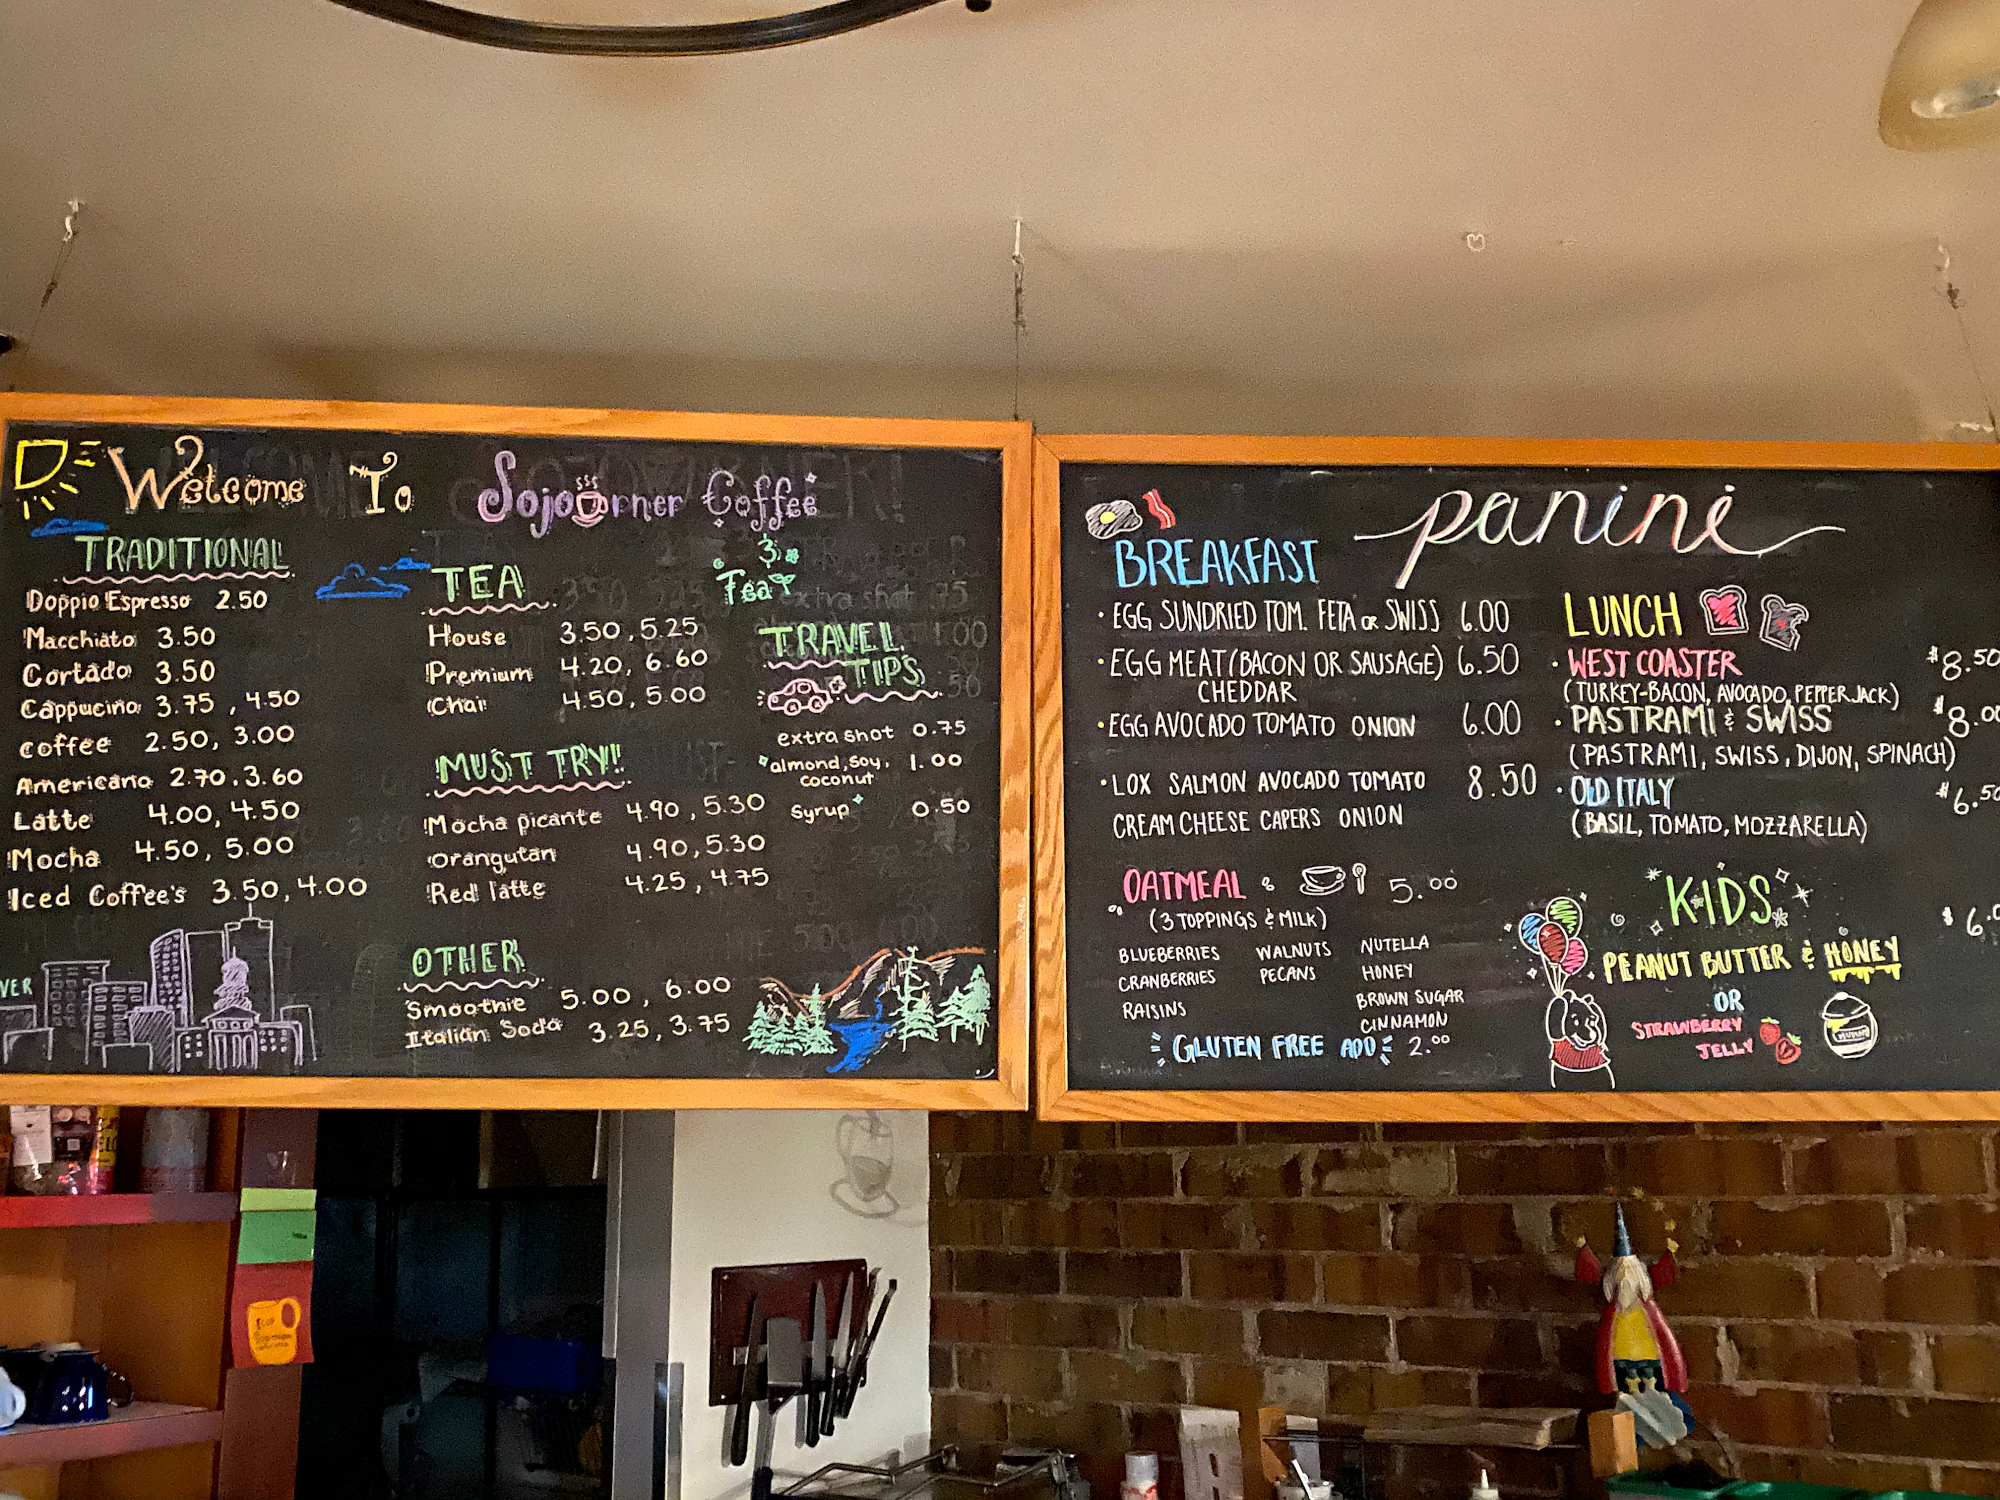 Welcome To Sojourner Coffee
& Tea
TRADITIONAL
Doppio Espresso 2.50
Macchiato 3.50
Cortado 3.50
Cappucino 3.75, 4.50
coffee 2.50, 3.00
Americano 2.70, 3.60
Latte 4.00, 4.50
Mocha 4.50, 5.00
Iced Coffee's 3.50, 4.00
VER
TEA
House 3.50, 5.25
Premium 4.20, 6.60
Chai 4.50, 5.00
MUST TRY!!
Mocha picante 4.90, 5.30
Orangutan 4.90, 5.30
Red latte 4.25, 4.75
OTHER
Smoothie 5.00, 6.00
Italian Soda 3.25, 3.75
TRAVEL
TIPS
extra shot 0.75
almond, soy, 1.00
coconut
Syrup 0.50
panini
BREAKFAST
• EGG SUNDRIED TOM. FETA OR SWISS 6.00
• EGG MEAT (BACON OR SAUSAGE) 6.50
CHEDDAR
• EGG AVOCADO TOMATO ONION 6.00
• LOX SALMON AVOCADO TOMATO 8.50
CREAM CHEESE CAPERS ONION
OATMEAL 5.00
(3 TOPPINGS & MILK)
BLUEBERRIES WALNUTS NUTELLA
CRANBERRIES PECANS HONEY
RAISINS BROWN SUGAR
CINNAMON
GLUTEN FREE ADD 2.00
LUNCH
• WEST COASTER $8.50
(TURKEY-BACON, AVOCADO, PEPPER JACK)
• PASTRAMI & SWISS $8.00
(PASTRAMI, SWISS, DIJON, SPINACH)
• OLD ITALY $6.50
(BASIL, TOMATO, MOZZARELLA)
KIDS $6.0
PEANUT BUTTER & HONEY
OR
STRAWBERRY
JELLY